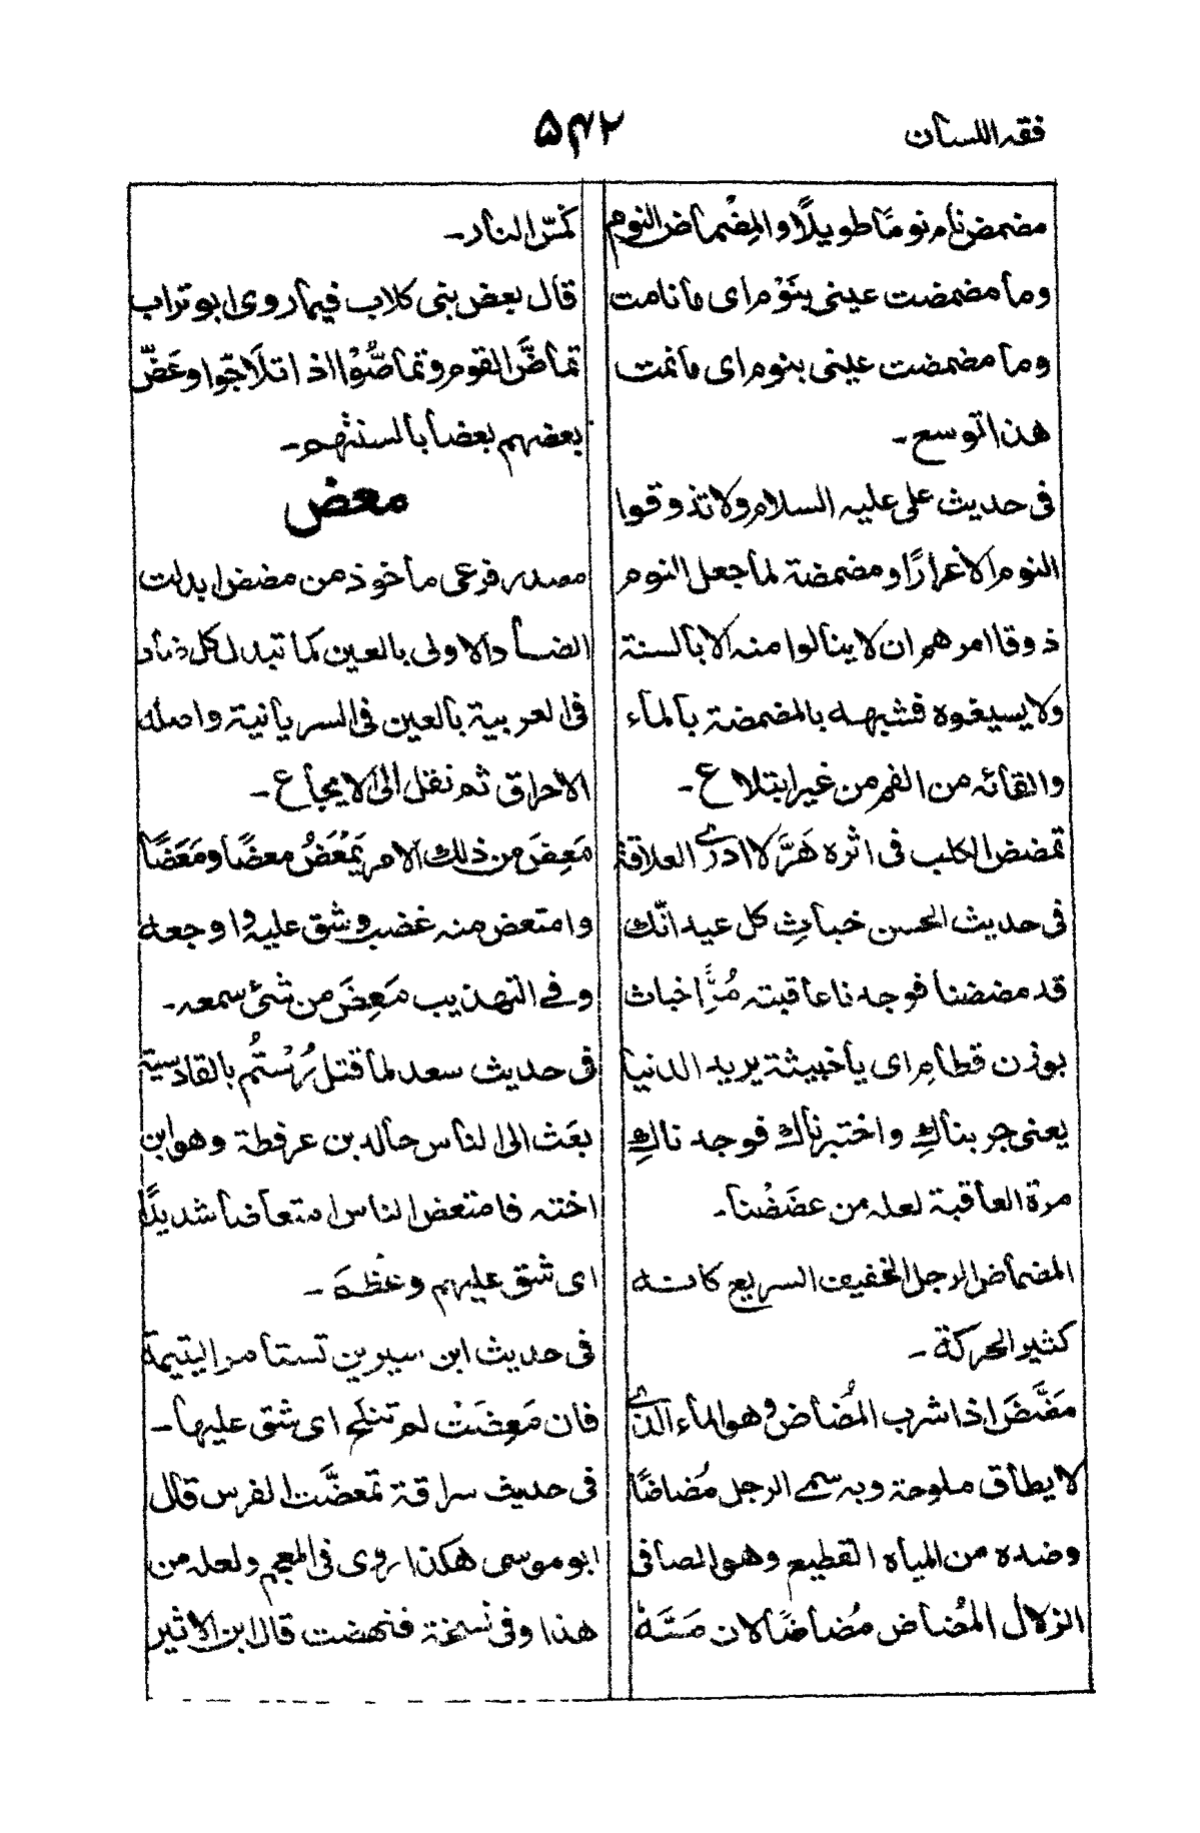 فقه اللسان
۵۴۲
مضمض نام نومًا طويلًا والمِضْماض النوم
وما مضمضت عيني بنَوْم اى ما نامت
وما مضمضت عينى بنوم اى ما نمت
هذا توسع ـ
فى حديث على عليه السلام ولا تذوقوا
النوم الا غرارًا ومضمضة لما جعل النوم
ذوقا امرهم ان لا ينالوا منه الا بالسنة
ولا يسيغوه فشبهه بالمضمضة بالماء
والقائه من الفم من غير ابتلاع ـ
تمضض الكلب فى اثره هَرَّ لا ادرى العلاقة
فى حديث الحسن خباثِ كل عيد انّك
قد مضضنا فوجدنا عاقبته مُرًّا خباث
بوزن قطامِ اى يا خبيثة يريد الدنيا
يعنى جربناكِ واختبرناكِ فوجدناكِ
مرة العاقبة لعله من عضَضْنا ـ
المضماض الرجل الخفيف السريع كانه
كثير الحركة ـ
مَضَّضَ اذا شرب المُضاض وهو الماء الذى
لا يطاق ملوحة وبه سمى الرجل مُضاضًا
وضده من المياه القطيع وهو الصافى
الزلال المُضاض مُضاضًا لان مَسَّهُ
كمَسّ النار ـ
قال بعض بنى كلاب فيما روى ابو تراب
تماضَّ القوم وتماضُّوْا اذا تلاجّوا وعَضّ
بعضهم بعضا بالسنتهم ـ
معض
مصدر فرعى ماخوذ من مضض ابدلت
الضاد الاولى بالعين كما تبدل كل ضاد
فى العربية بالعين فى السريانية واصله
الاحراق ثم نقل الى الايجاع ـ
مَعِضَ من ذلك الامر يَمْعَضُ معضًا ومَعَضًا
وامتعض منه غضب وشق عليه واوجعه
وفى التهذيب مَعِضَ من شئ سمعه ـ
فى حديث سعد لما قتل رُسْتُم بالقادسية
بعَث الى الناس خالد بن عرفطة وهو ابن
اخته فامتعض الناس امتعاضا شديدًا
اى شق عليهم وعظم ـ
فى حديث ابن سيرين تستامر اليتيمة
فان مَعِضَتْ لم تنكح اى شق عليها ـ
فى حديث سراقة تمعضَّت الفرس قال
ابو موسى هكذا روى فى المعجم ولعله من
هذا وفى نسخة فنهضت قال ابن الاثير